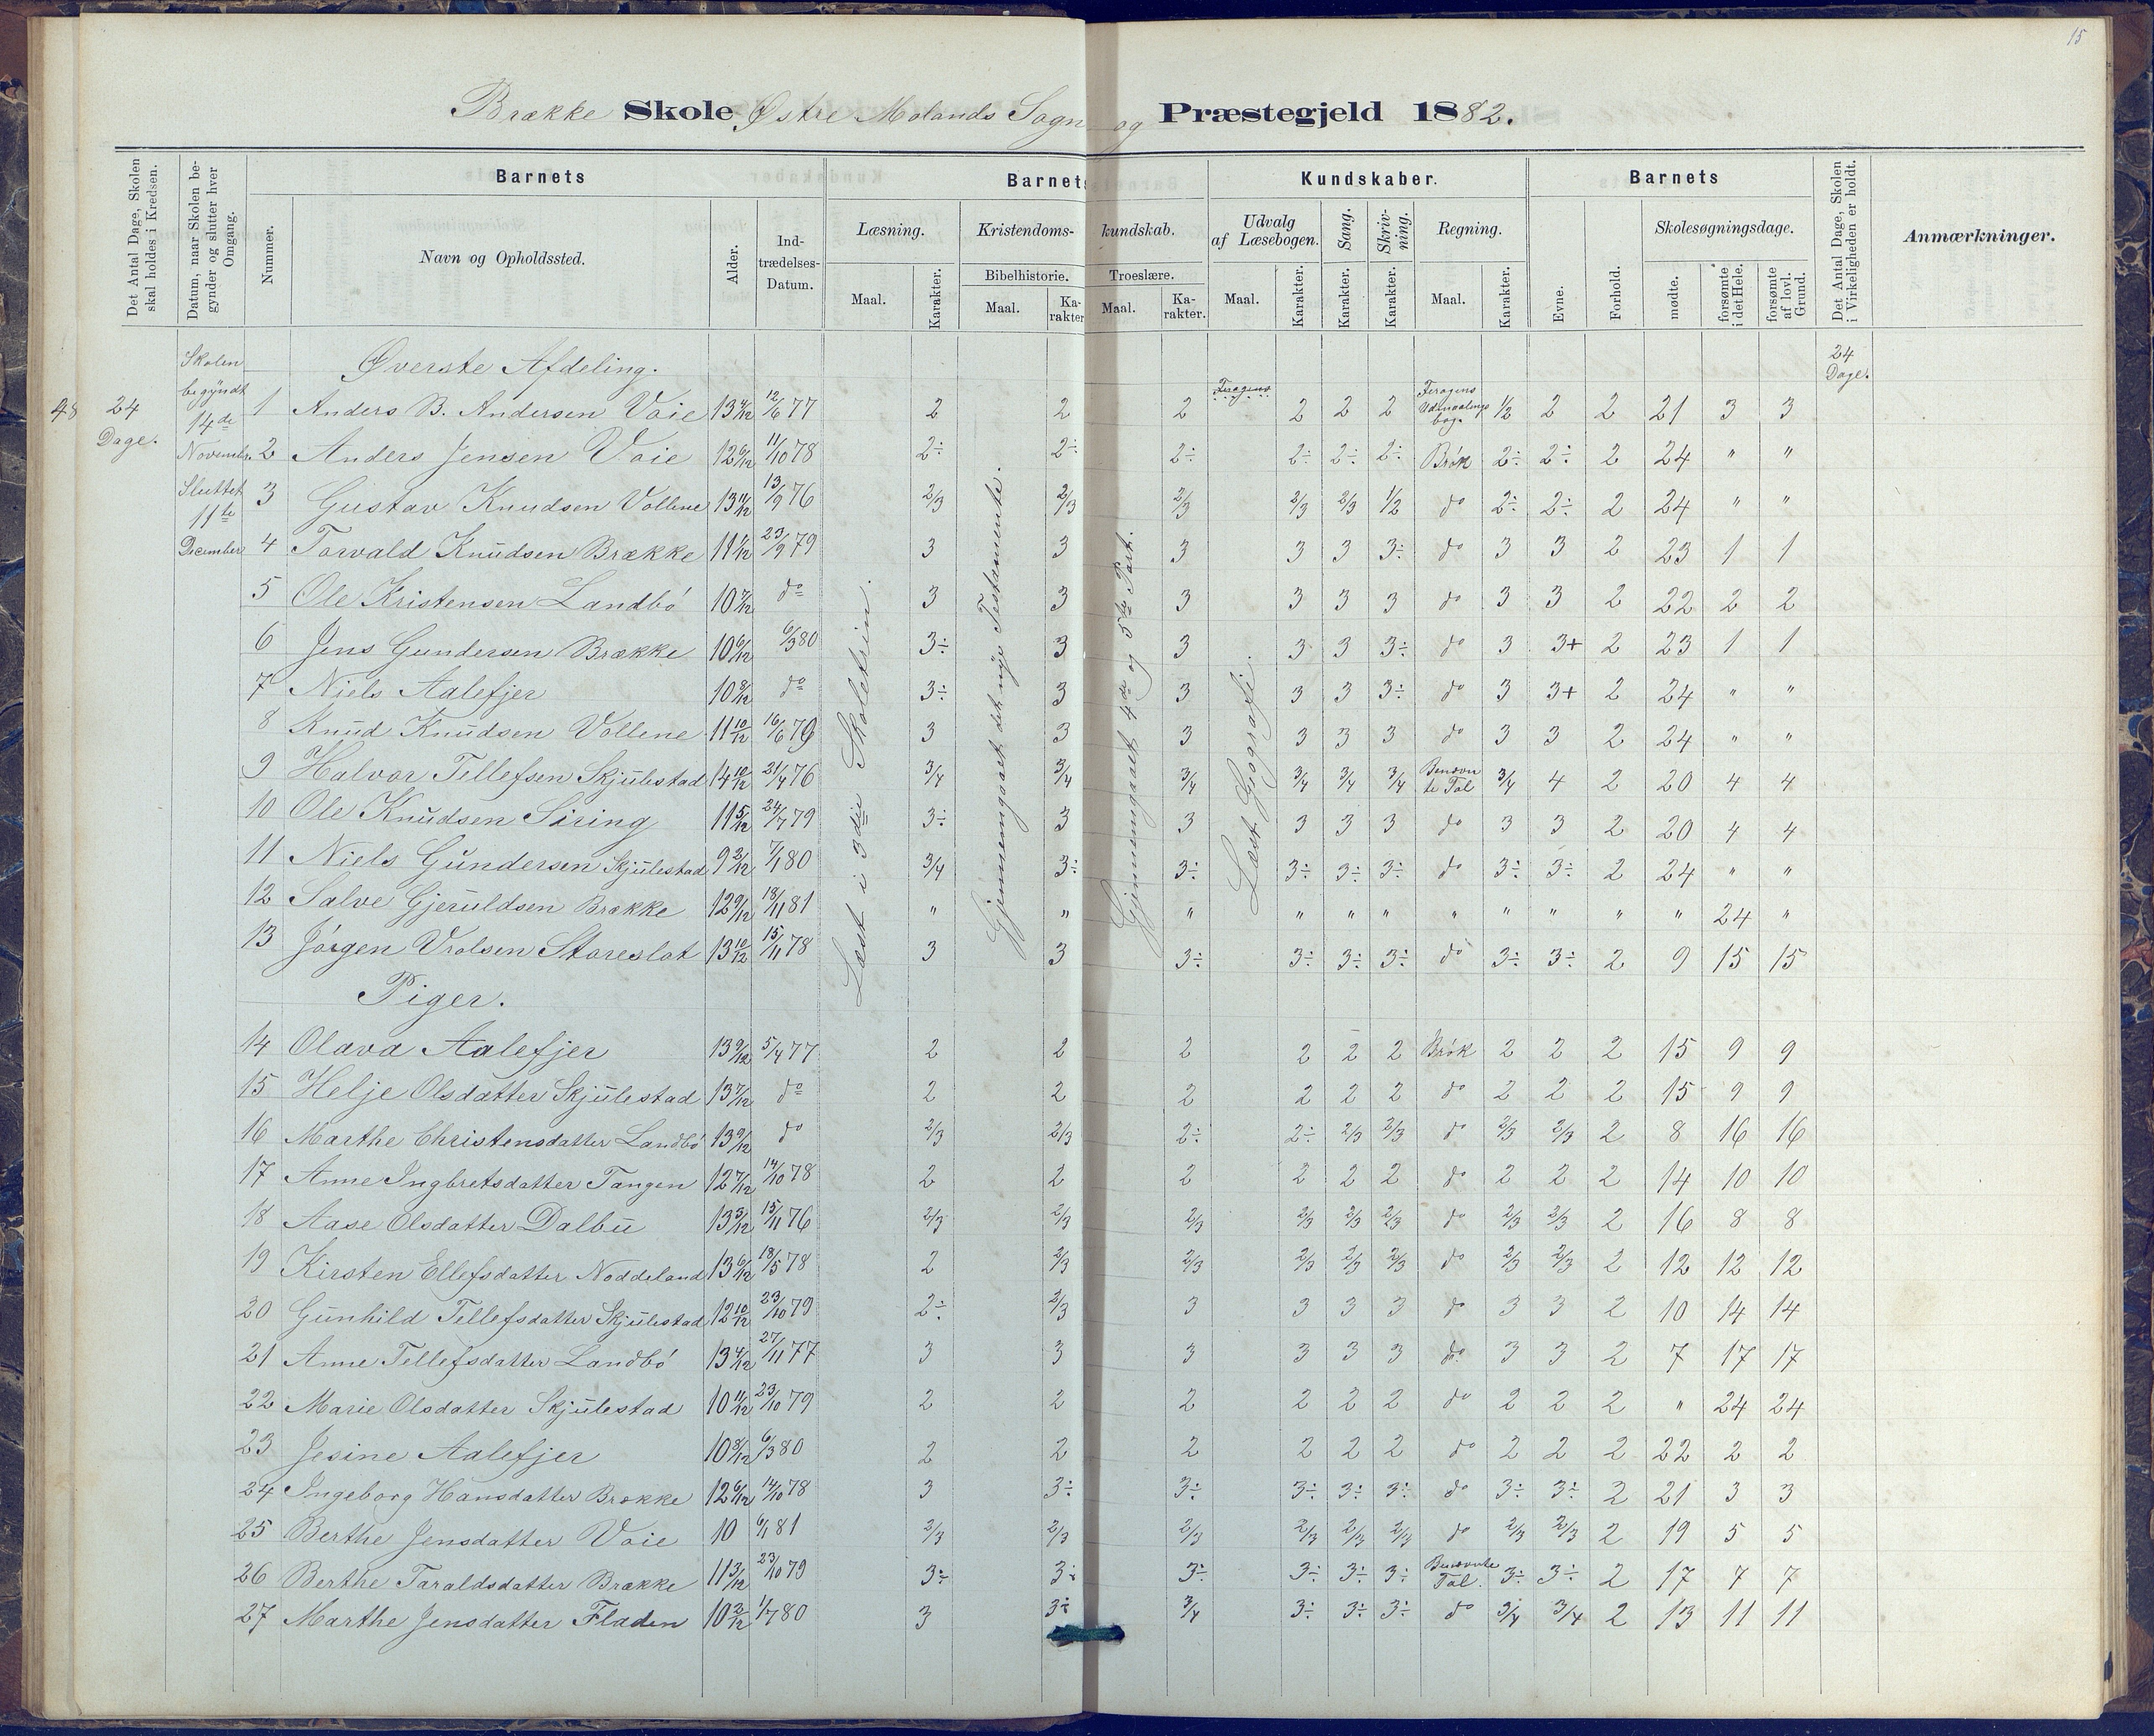 15
Brække Skole Østre Molands Sogn og Præstegjeld 1882.
Det Antal Dage, Skolen skal holdes i Kredsen.
Datum, naar Skolen begynder og slutter hver Omgang.
Barnets
Nummer.
Navn og Opholdssted.
Alder.
Indtrædelses-Datum.
Barnets Kundskaber.
Læsning.
Maal.
Karakter.
Kristendomskundskab.
Bibelhistorie.
Maal.
Karakter
Troeslære.
Maal.
Karakter.
Udvalg af Læsebogen.
Maal.
Karakter.
Sang.
Karakter.
Skrivning.
Karakter.
Regning.
Maal.
Karakter.
Barnets
Evne.
Forhold.
Skolesøgningsdage.
mødte.
forsømte i det Hele.
forsømte af lovl. Grund.
Det Antal Dage, Skolen i Virkeligheden er holdt.
Anmærkninger.
48
24 Dage.
Skolen begyndt 14de Novembr. Sluttet 11te December
24 Dage.
Læst i 3die Skoletrin.
Gjennemgaaet det nye Testamente.
Gjennemgaaet 4de og 5te Part.
Læst Geografi.
Øverste Afdeling.
1 Anders B. Andersen Voie 13 4/12 12/6 77 2 2 2 2 2 2 Feragens Udmaalings bog. 1/2 2 2 21 3 3
2 Anders Jensen Voie 12 6/12 11/10 78 2÷ 2÷ 2÷ 2÷ 2÷ 2÷ Brøk 2÷ 2÷ 2 24 " "
3 Gustav Knudsen Vollene 13 11/12 13/9 76 2/3 2/3 2/3 2/3 2/3 1/2 do 2÷ 2÷ 2 24 " "
4 Torvald Knudsen Brække 11 1/12 23/9 79 3 3 3 3 3 3÷ do 3 3 2 23 1 1
5 Ole Kristensen Landbö 10 7/12 do 3 3 3 3 3 3 do 3 3 2 22 2 2
6 Jens Gundersen Brække 10 6/12 6/3 80 3÷ 3 3 3 3 3÷ do 3 3+ 2 23 1 1
7 Niels Aalefjer 10 8/12 do 3÷ 3 3 3 3 3÷ do 3 3+ 2 24 " "
8 Knud Knudsen Vollene 11 10/12 16/6 79 3 3 3 3 3 3 do 3 3 2 24 " "
9 Halvor Tellefsen Skjulestad 14 10/12 21/4 76 3/4 3/4 3/4 3/4 3/4 3/4 Benævnte Tal 3/4 4 2 20 4 4
10 Ole Knudsen Siring 11 5/12 24/7 79 3÷ 3 3 3 3 3 do 3 3 2 20 4 4
11 Niels Gundersen Skjulestad 9 2/12 7/1 80 3/4 3÷ 3÷ 3÷ 3÷ 3÷ do 3÷ 3÷ 2 24 " "
12 Salve Gjeruldsen Brække 12 9/12 18/11 81 " " " " " " " " " " " 24 "
13 Jörgen Vrolsen Storeslot 13 10/12 15/11 78 3 3 3÷ 3÷ 3÷ 3÷ do 3÷ 3÷ 2 9 15 15
Piger.
14 Olava Aalefjer 13 9/12 5/4 77 2 2 2 2 2 2 Brök 2 2 2 15 9 9
15 Helje Olsdatter Skjulestad 13 7/12 do 2 2 2 2 2 2 do 2 2 2 15 9 9
16 Marthe Christensdatter Landbö 13 9/12 do 2/3 2/3 2÷ 2÷ 2/3 2/3 do 2/3 2/3 2 8 16 16
17 Anne Ingbretsdatter Tangen 12 7/12 14/10 78 2 2 2 2 2 2 do 2 2 2 14 10 10
18 Aase Olsdatter Dalbu 13 5/12 15/11 76 2/3 2/3 2/3 2/3 2/3 2/3 do 2/3 2/3 2 16 8 8
19 Kirsten Ellefsdatter Noddeland 13 6/12 18/5 78 2 2/3 2/3 2/3 2/3 2/3 do 2/3 2/3 2 12 12 12
20 Gunhild Tellefsdatter Skjulestad 12 10/12 23/10 79 2÷ 2/3 3 3 3 3 do 3 3 2 10 14 14
21 Anne Tellefsdatter Landbö 13 4/12 27/11 77 3 3 3 3 3 3 do 3 3 2 7 17 17
22 Marie Olsdatter Skjulestad 10 11/12 23/10 79 2 2 2 2 2 2 do 2 2 2 " 24 24
23 Jesine Aalefjer 10 8/12 6/3 80 2 2 2 2 2 2 do 2 2 2 22 2 2
24 Ingeborg Hansdatter Brække 12 6/12 14/10 78 3 3÷ 3÷ 3÷ 3÷ 3÷ do 3÷ 3÷ 2 21 3 3
25 Berthe Jensdatter Voie 10 6/1 81 2/3 2/3 2/3 2/3 2/3 2/3 do 2/3 2/3 2 19 5 5
26 Berthe Taraldsdatter Brække 11 3/12 23/10 79 3÷ 3÷ 3÷ 3÷ 3÷ 3÷ Benævnte Tal. 3÷ 3÷ 2 17 7 7
27 Marthe Jensdatter Fladen 10 2/12 1/7 80 3 3÷ 3/4 3÷ 3÷ 3÷ do 3/4 3/4 2 13 11 11